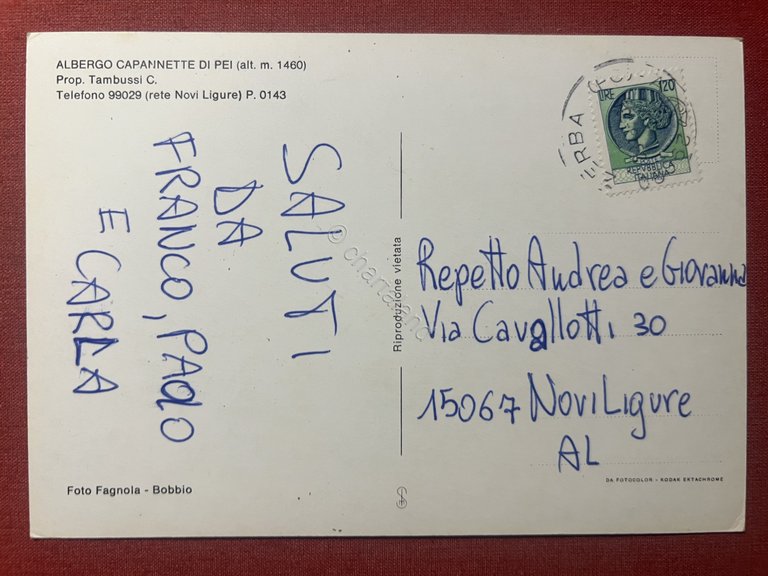 ALBERGO CAPANNETTE DI PEI (alt. m. 1460)
Prop. Tambussi C.
Telefono 99029 (rete Novi Ligure) P. 0143
SALUTI
DA
FRANCO, PAOLO
E CARLA
Foto Fagnola - Bobbio
Riproduzione vietata
LIRE 120
REPVBBLICA
ITALIANA
Repetto Andrea e Giovanna
Via Cavallotti 30
15067 Novi Ligure
AL
DA FOTOCOLOR - KODAK EKTACHROME